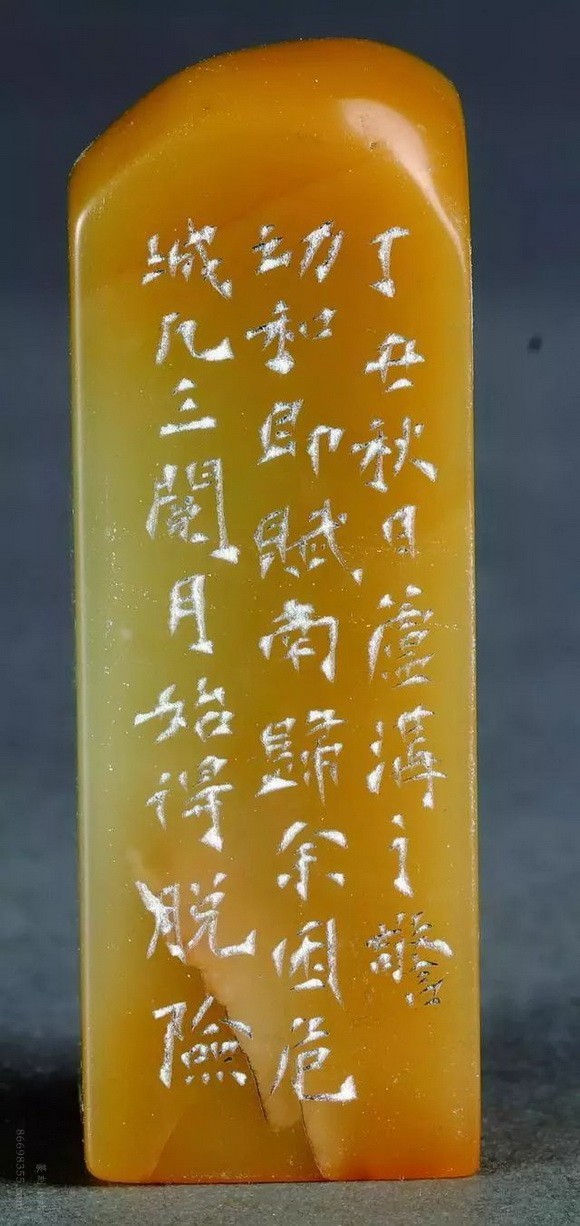 丁丑秋日蘆溝之警
幼和即賦南歸余困危
城凡三閱月始得脫險